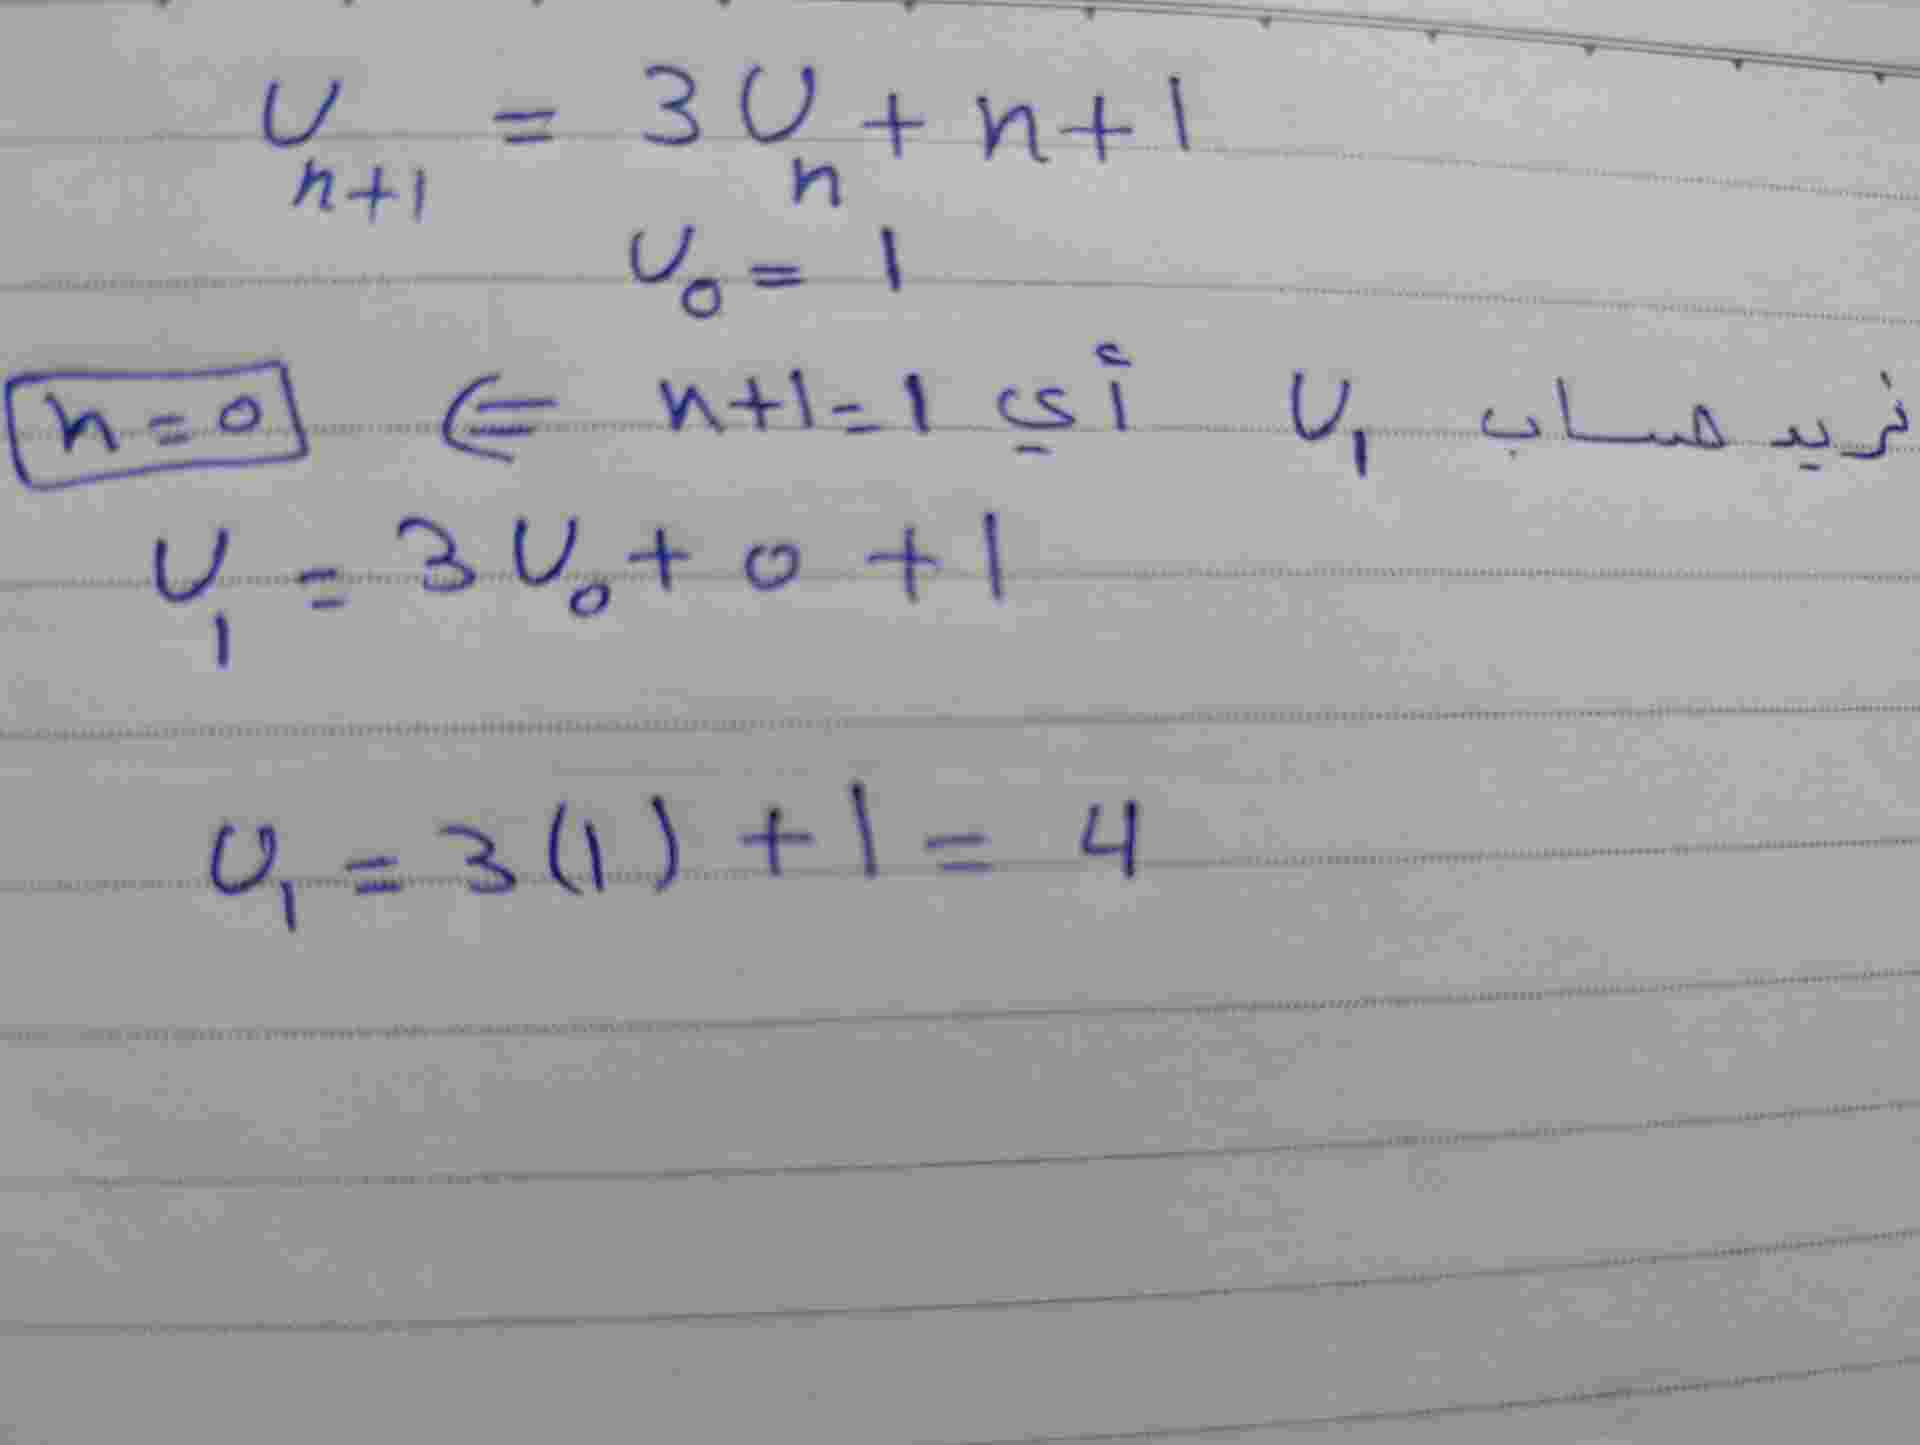 U_{n+1} = 3U_n + n+1
U_0 = 1
نريد حساب U_1 أي n+1=1 ⇐ n=0
U_1 = 3U_0 + 0 + 1
U_1 = 3(1) + 1 = 4